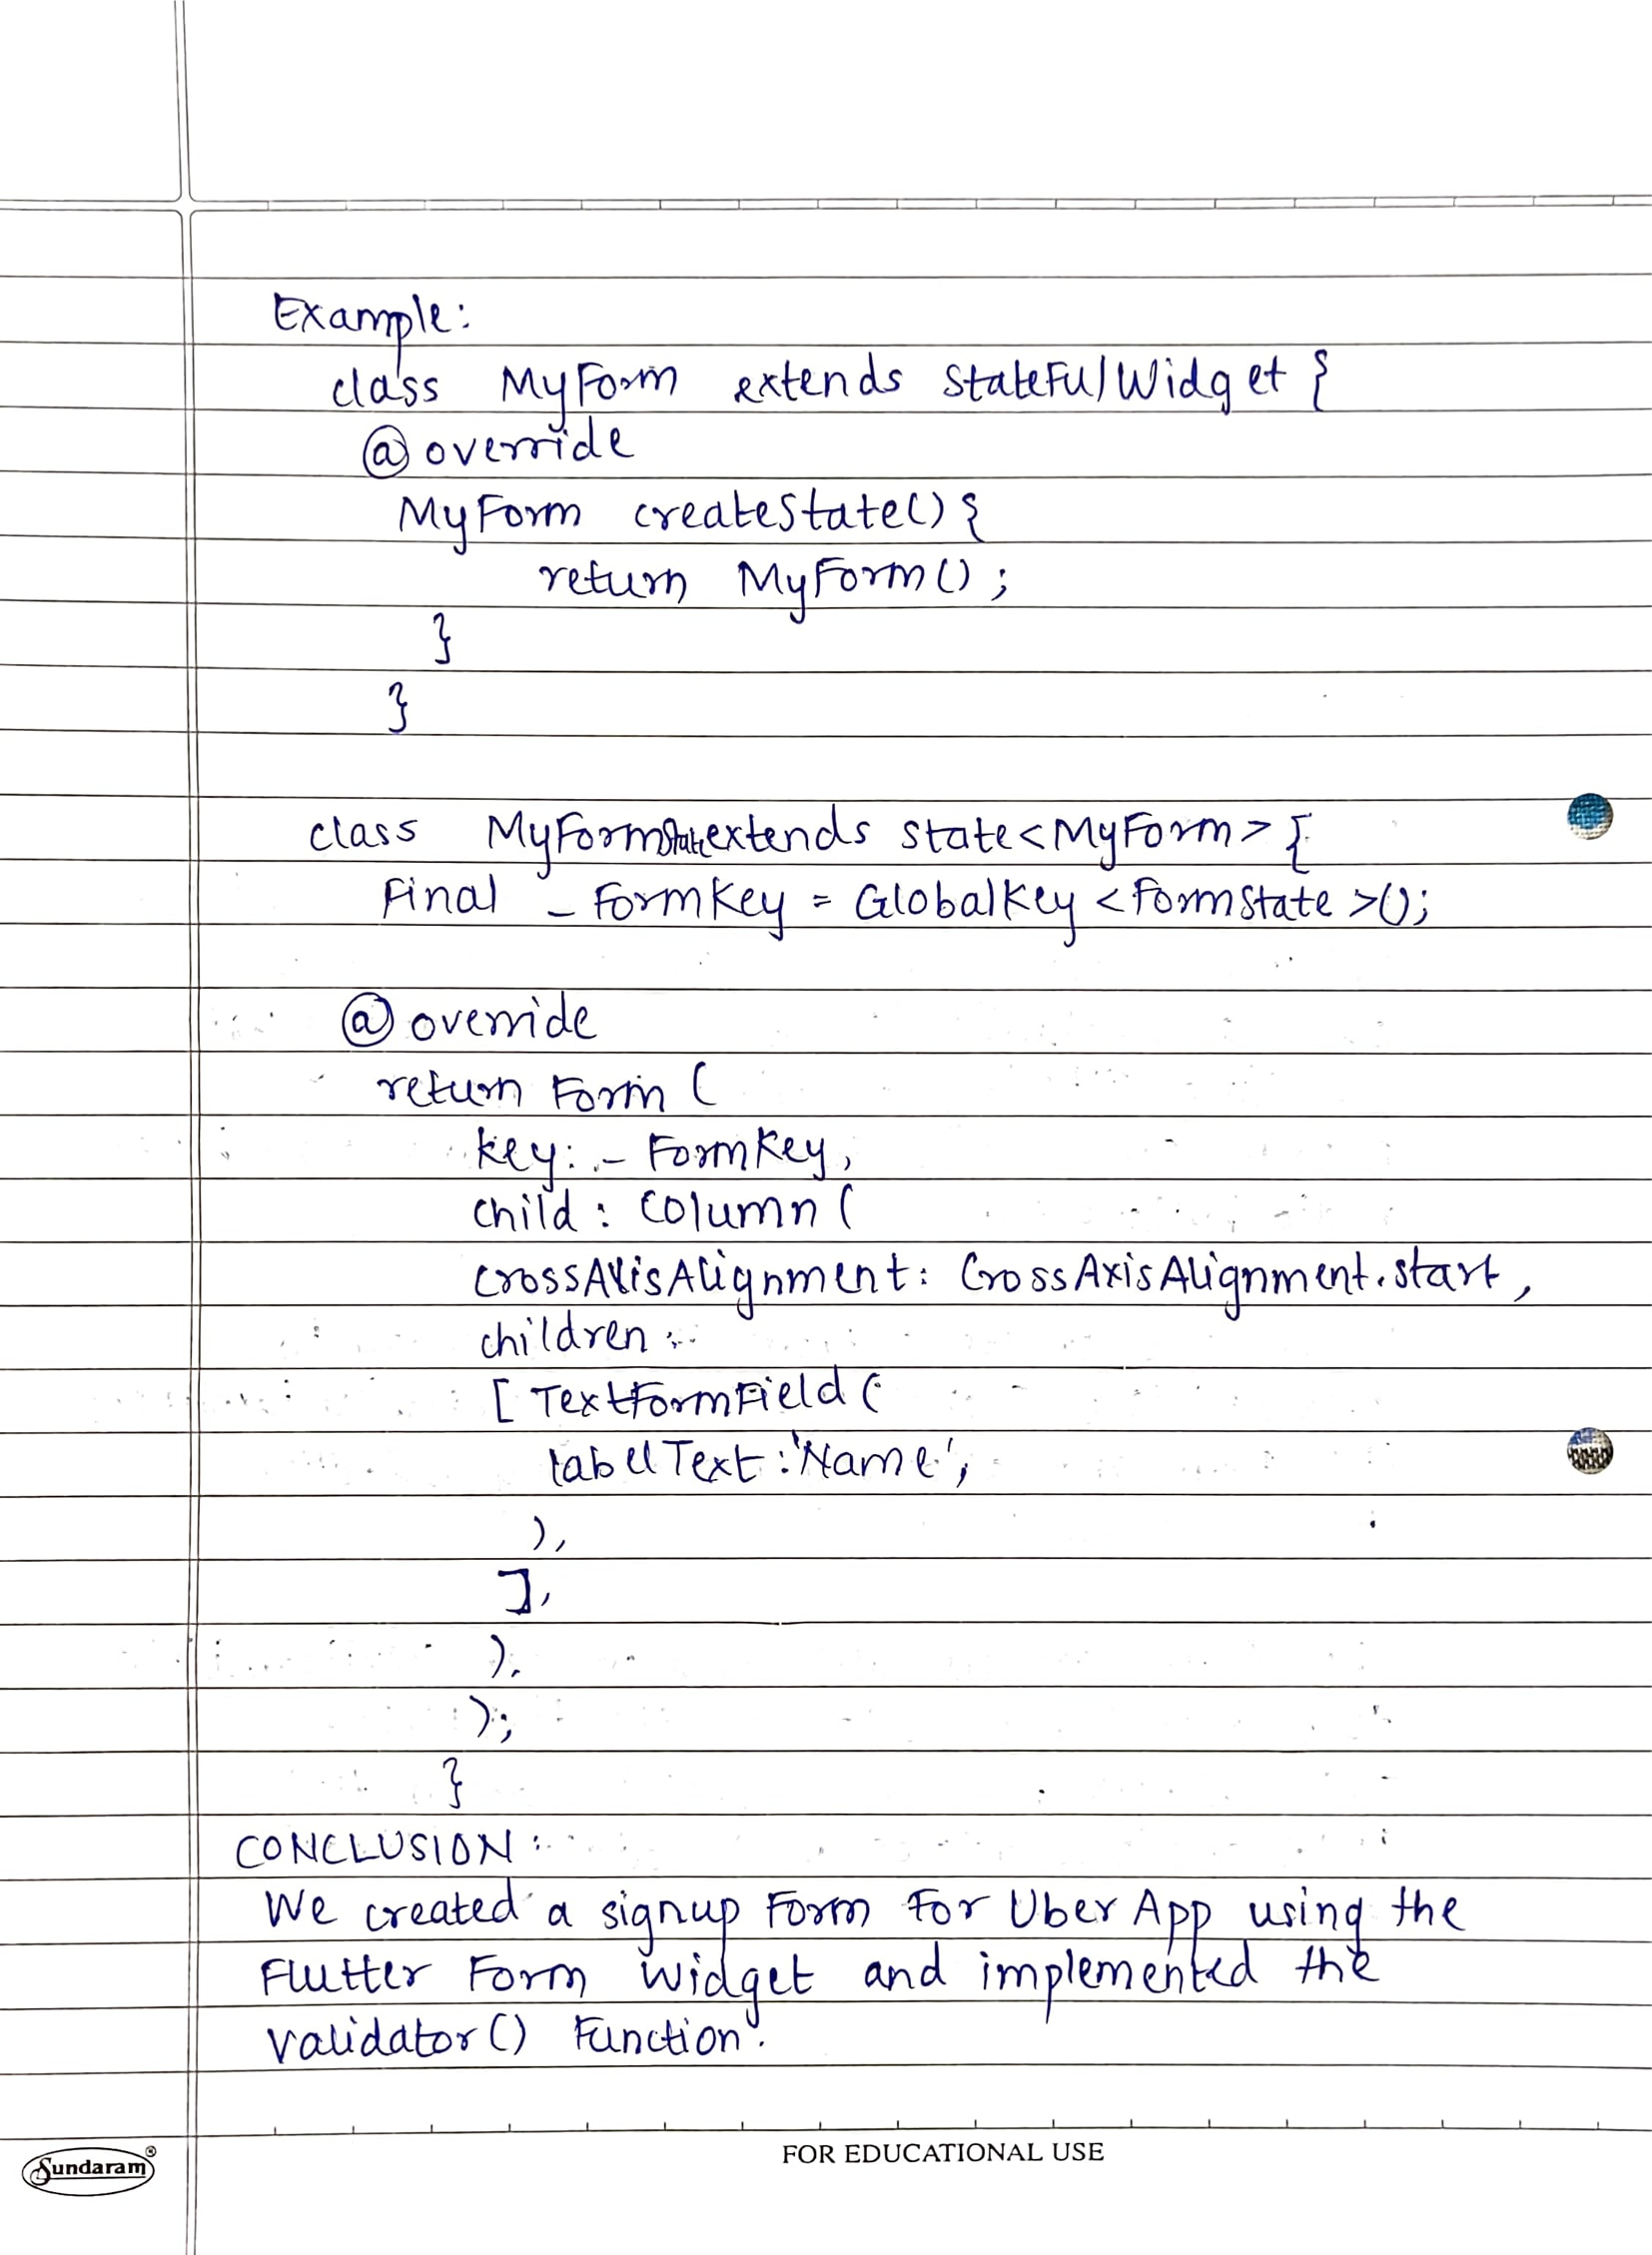 Example:
class MyForm extends StatefulWidget {
@override
MyForm createState() {
return MyForm();
}
}
class MyFormState extends State<MyForm> {
final _formKey = GlobalKey<FormState>();
@override
return Form (
key: _formKey,
child: Column (
crossAxisAlignment: CrossAxisAlignment.start,
children:
[ TextFormField (
labelText: 'Name',
),
],
),
);
}
CONCLUSION:
We created a signup form for Uber App using the
Flutter Form Widget and implemented the
validator() function.
Sundaram®
FOR EDUCATIONAL USE